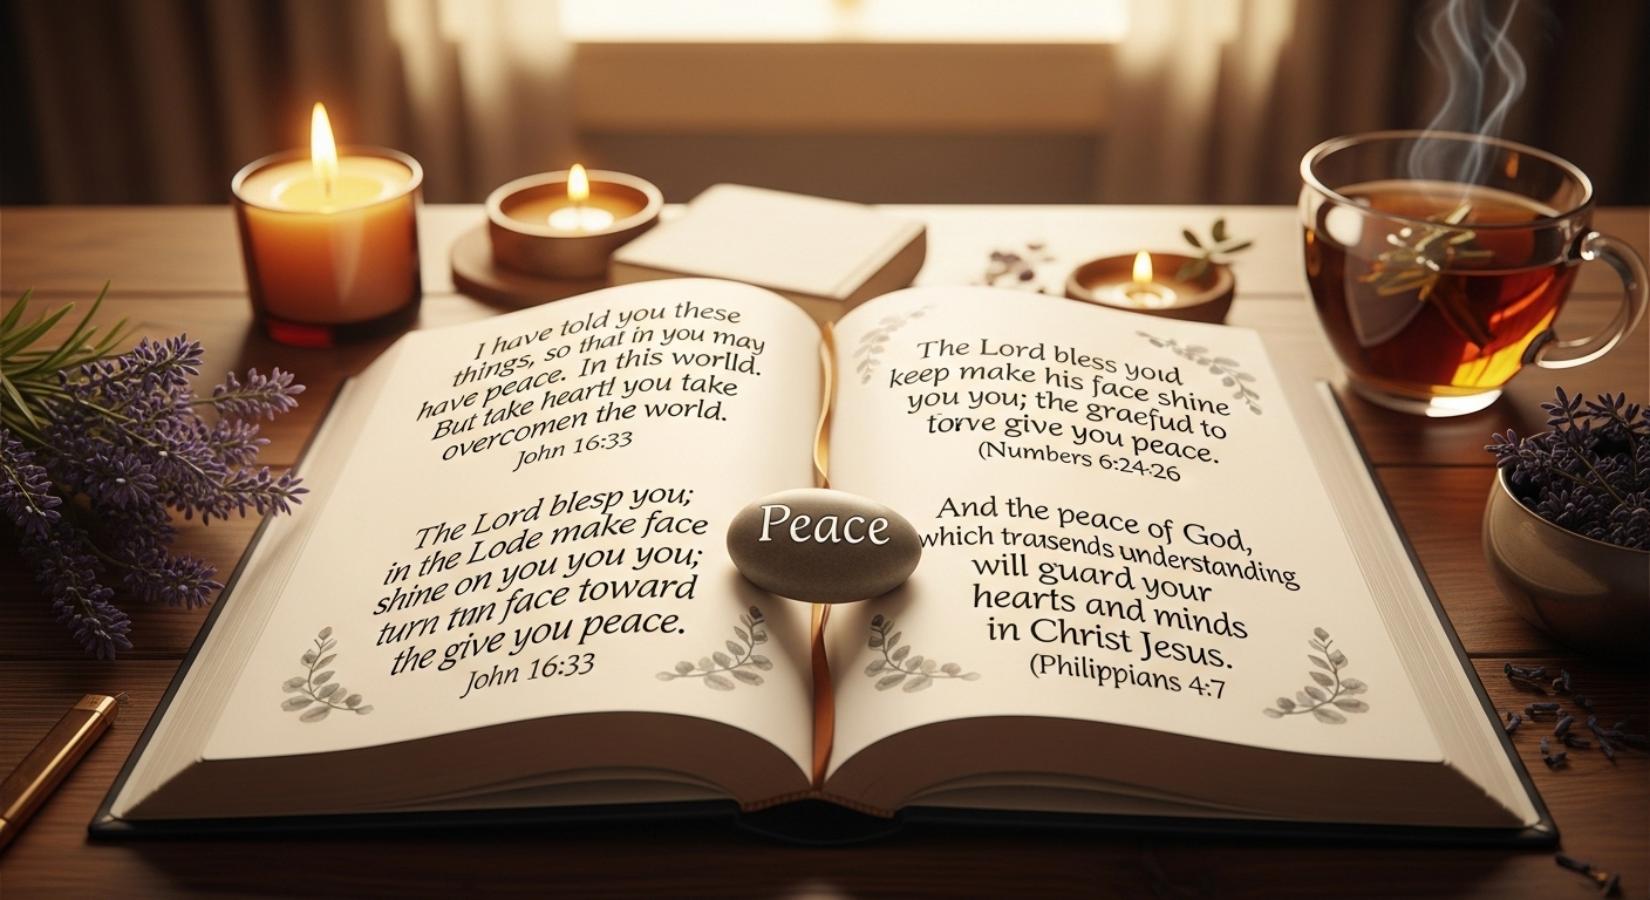 I have told you these
things, so that in you may
have peace. In this worlld.
But take heartl you take
overcomen the world.
John 16:33
The Lord blesp you;
in the Lode make face
shine on you you you;
turn tnn face toward
the give you peace.
John 16:33
Peace
The Lord bless yoıd
keep make his face shine
you you; the graefud to
torve give you peace.
(Numbers 6:24-26
And the peace of God,
which traısends understanding
will guard your
hearts and minds
in Christ Jesus.
(Philippians 4:7